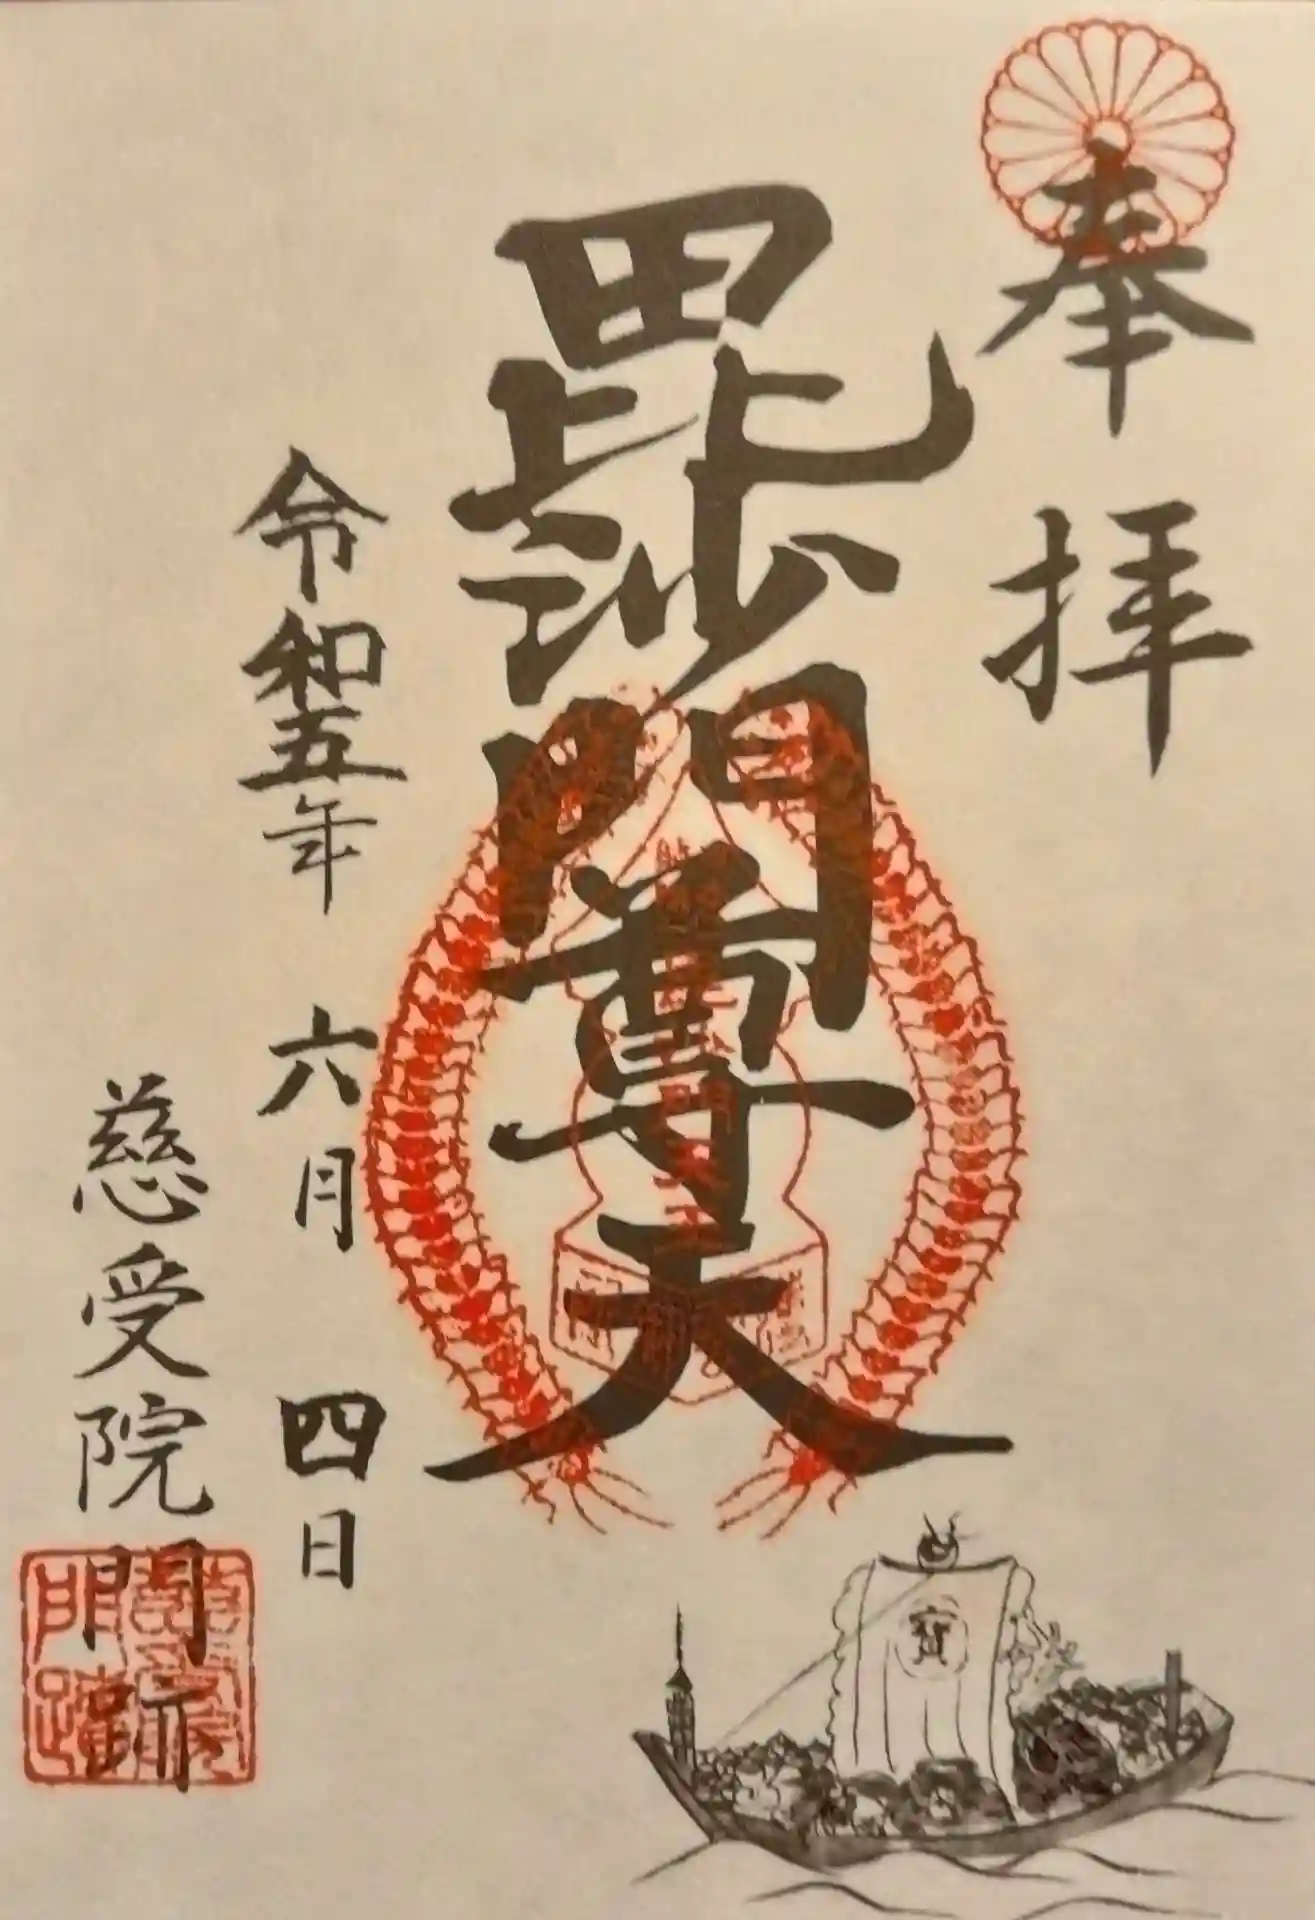 奉拝
毘沙門尊天
令和五年 六月 四日
慈受院門跡
寶